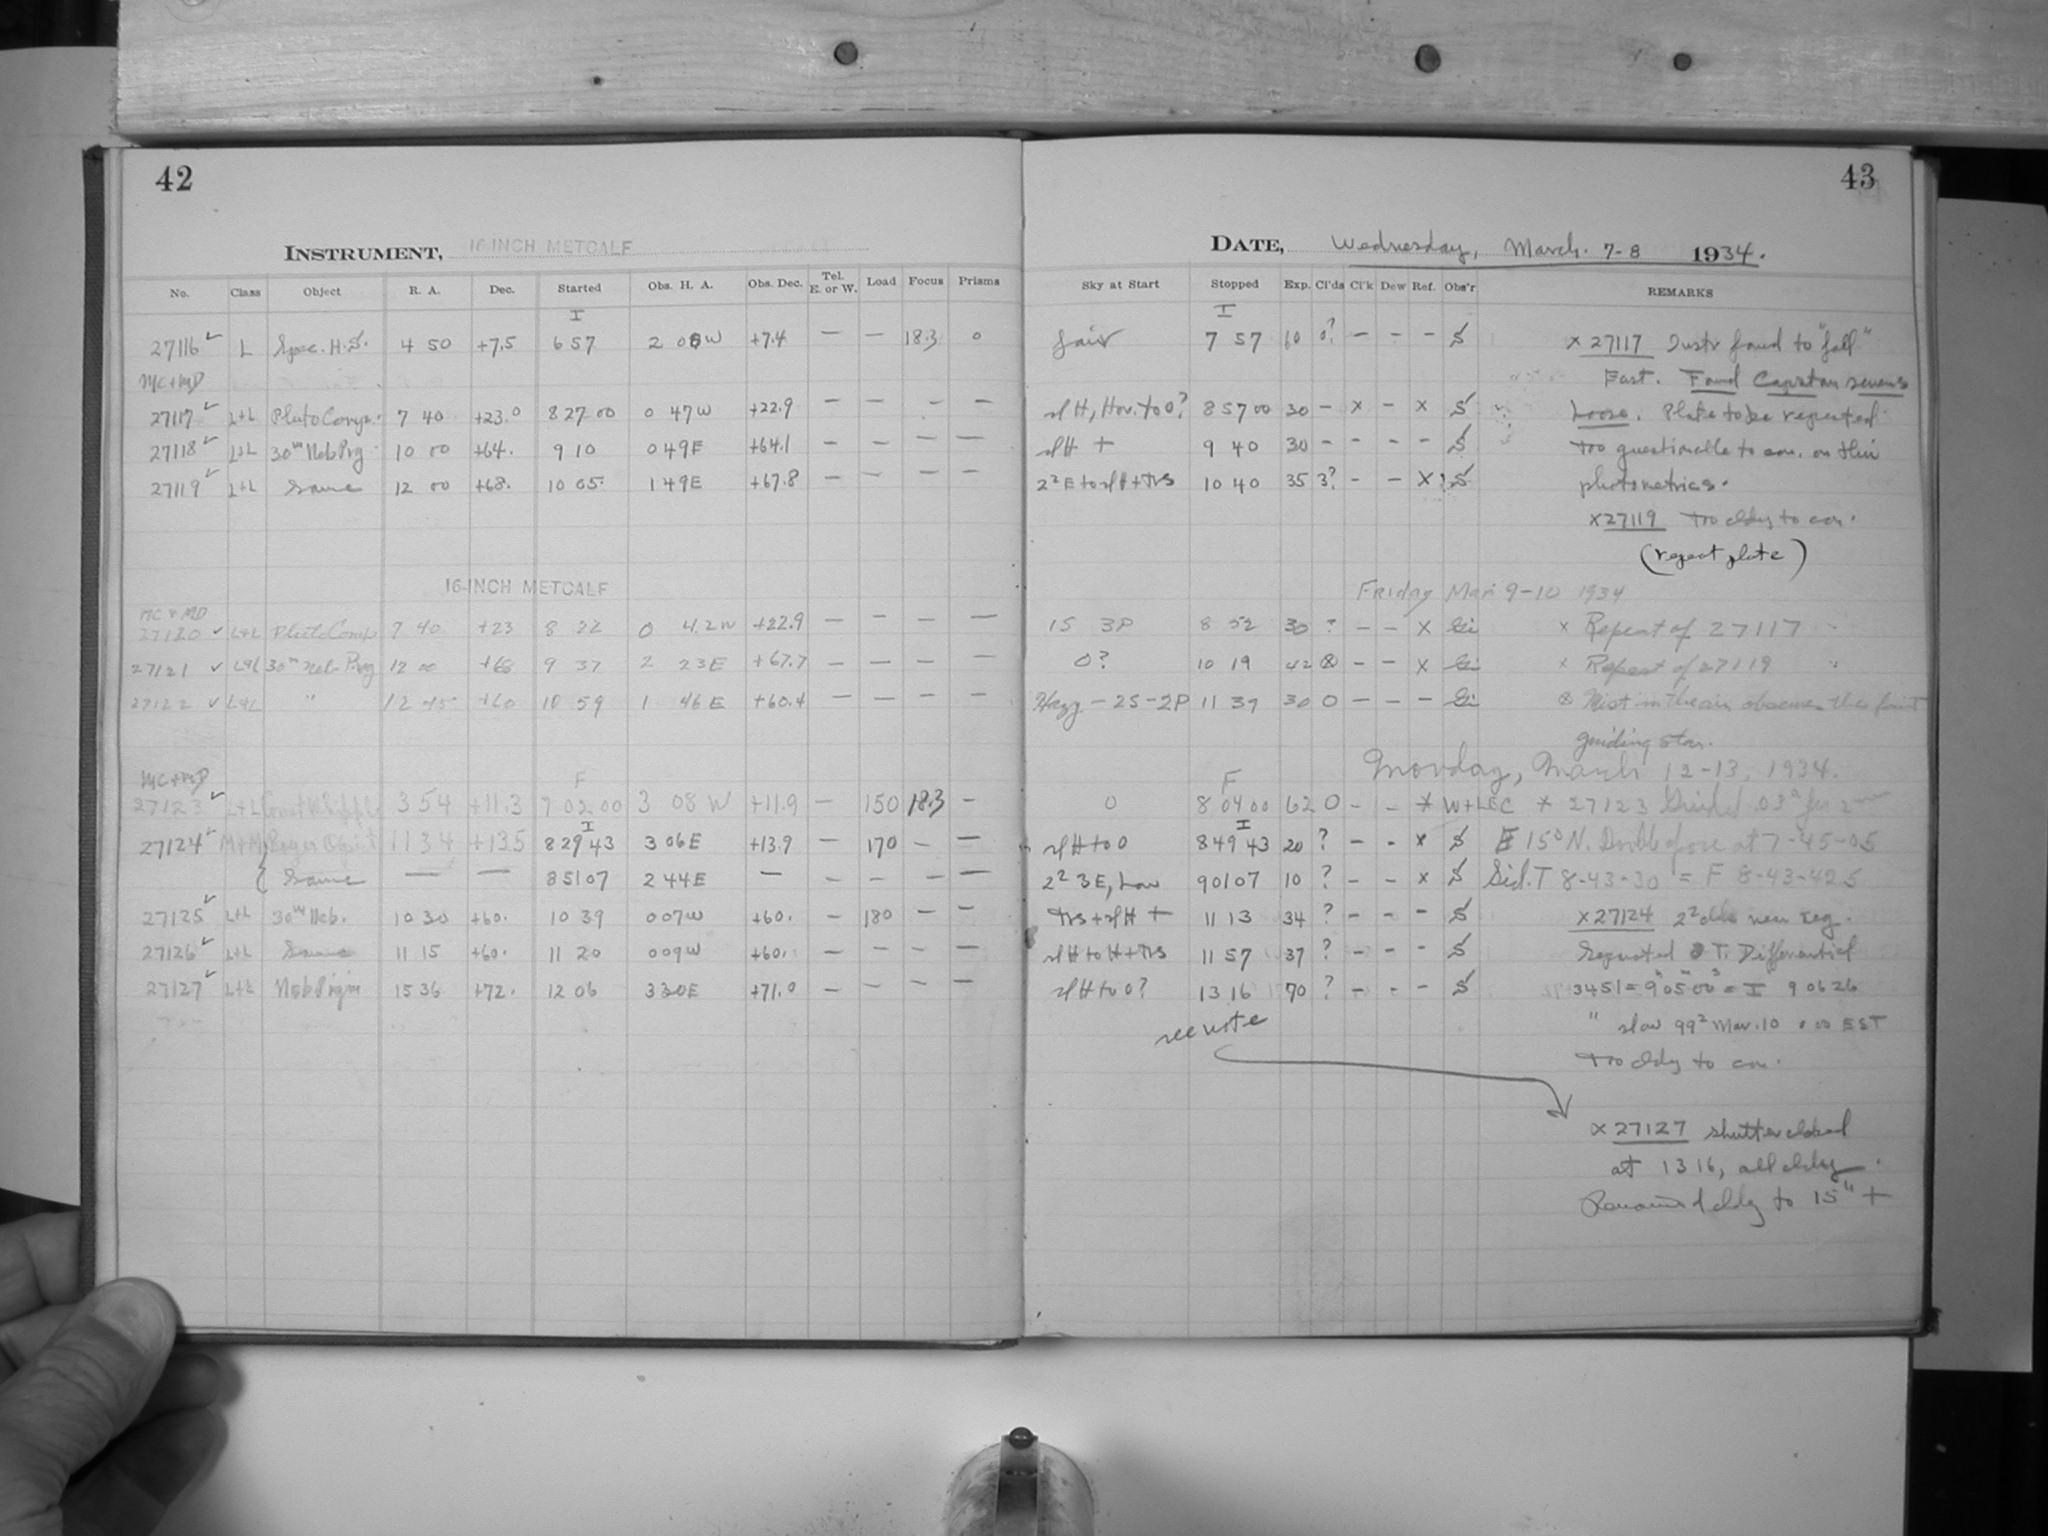 42
43
INSTRUMENT, 16-INCH METCALF
DATE, Wednesday, March 7-8 1934.
No. Class Object R. A. Dec. Started Obs. H. A. Obs. Dec. Tel. E. or W. Load Focus Prisms Sky at Start Stopped Exp. Cl'ds Cl'k Dew Ref. Obs'r REMARKS
I I
27116 ✓ L Spec. H.S. 4 50 +7.5 6 57 2 08 W +7.4 — — 18.3 0 fair 7 57 60 0? — - - S x 27117 Instr found to "fall"
MC+MD East. Found Capstan screws
27117 ✓ L+L Pluto Comp. 7 40 +23.0 8 27 00 0 47 W +22.9 — — - — sl H, Hor. to 0? 8 57 00 30 - x - x S loose. Plate to be repeated
27118 ✓ L+L 30m Neb Prg 10 00 +64. 9 10 0 49 E +64.1 — — — — sl H + 9 40 30 - - - - S Too questionable to con. on
27119 ✓ L+L Same 12 00 +68. 10 05 1 49 E +67.8 — — — — 2² E to sl H + Trs 10 40 35 3? - - X S photometrics.
x 27119 Too cldy to con.
(repeat plate)
16-INCH METCALF Friday Mar. 9-10 1934
MC & MD
27120 ✓ L+L Pluto Comp 7 40 +23 8 22 0 42 W +22.9 — — — — 1S 3P 8 52 30 ? - - X Gi x Repeat of 27117
27121 ✓ L+L 30m Neb Prog 12 00 +68 9 37 2 23 E +67.7 — — — — 0? 10 19 42 ⊗ - - X Gi x Repeat of 27119
27122 ✓ L+L " 12 45 +60 10 59 1 46 E +60.4 — — — — Hazy - 2S - 2P 11 39 30 0 - - - Gi ⊗ Mist in the air obscures the faint
guiding star.
Monday, March 12-13, 1934.
MC+MD F F
27123 ✓ L+L 3 54 +11.3 7 02 00 3 08 W +11.9 — 150 18.3 — 0 8 04 00 62 0 - - * W+LEC * 27123 Guided .03
I I
27124 ✓ M+M 11 34 +13.5 8 29 43 3 06 E +13.9 — 170 — — sl H to 0 8 49 43 20 ? - - x S E 15° N. at 7-45-05
Same — — 8 51 07 2 44 E — — — — — 2² 3E, Low 9 01 07 10 ? - - x S Sid. T 8-43-30 = F 8-43-42.5
27125 ✓ L+L 30m Neb. 10 30 +60. 10 39 0 07 W +60. — 180 — — Trs + sl H + 11 13 34 ? - - - S x 27124 2² clds near reg.
27126 ✓ L+L Same 11 15 +60. 11 20 0 09 W +60. — — — — sl H to H + Trs 11 57 37 ? - - - S T. Differential
27127 ✓ L+L 15 36 +72. 12 06 3 30 E +71.0 — — — — sl H to 0? 13 16 70 ? - - - S 3451 = 9 05 00 = I 9 06 26
see note " slow 99² Mar. 10 0 00 EST
Too cldy to con.
x 27127 shutter closed
at 13 16, all cldy.
Remained cldy to 15h +